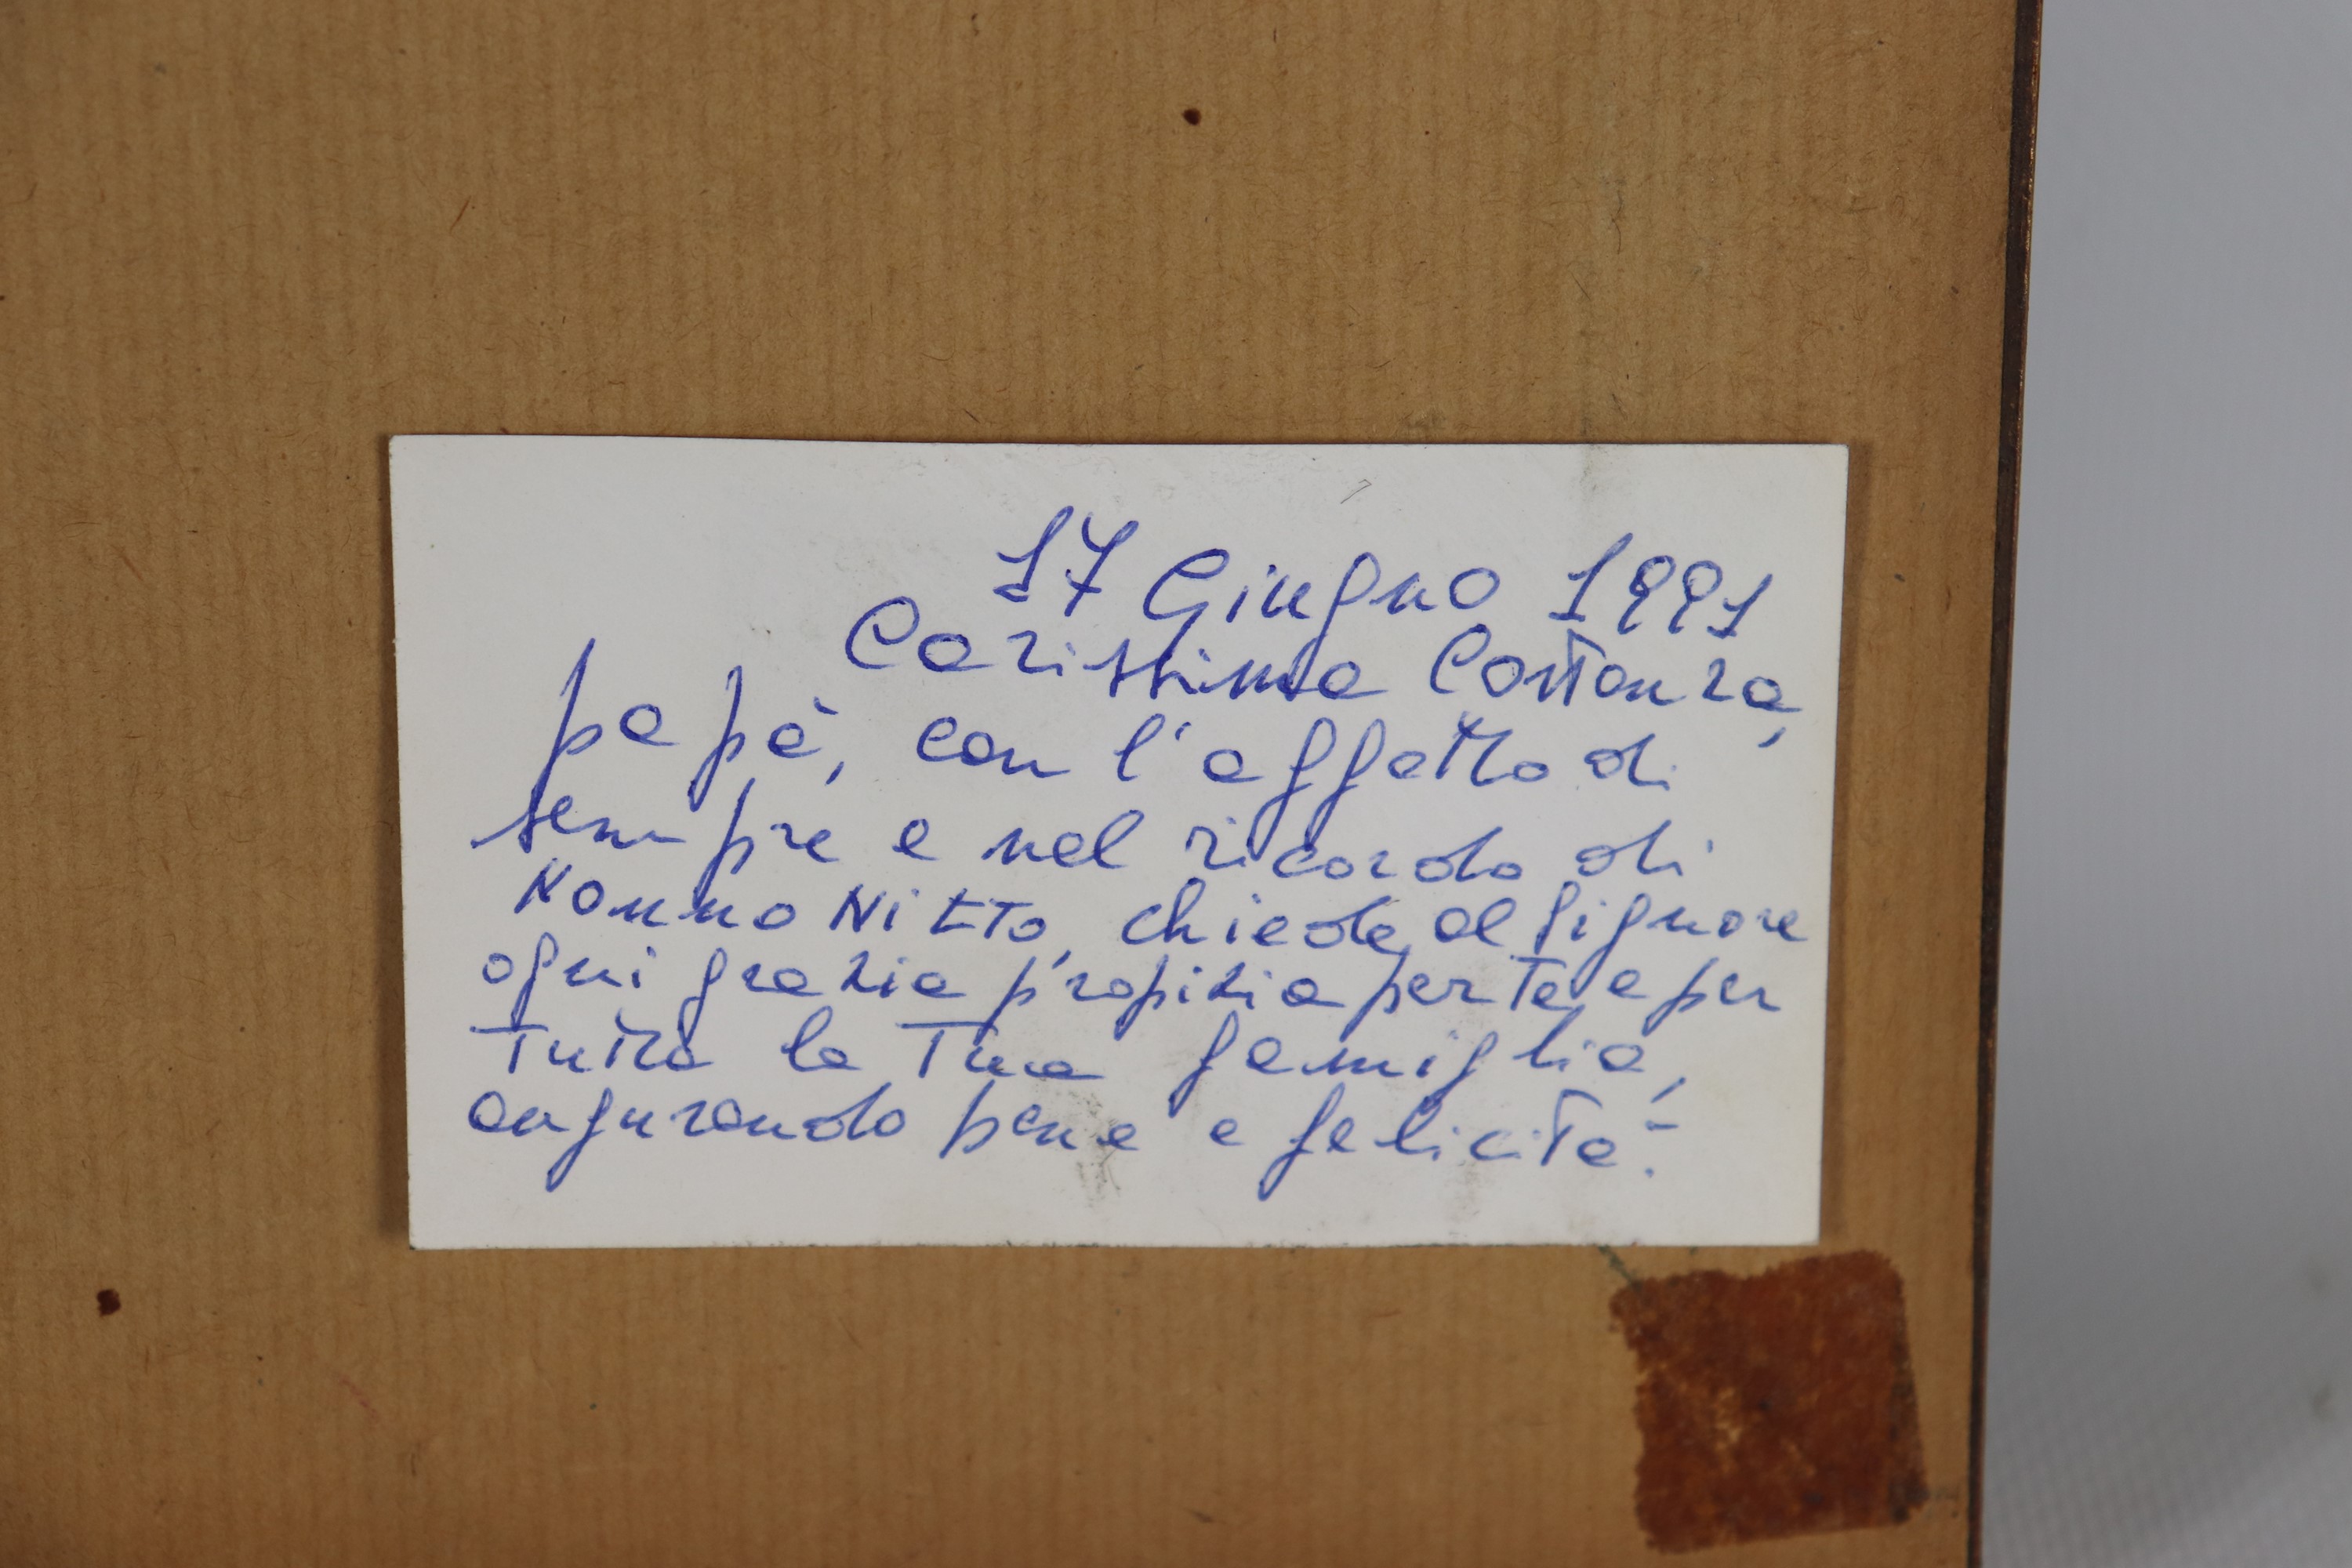 17 Giugno 1991
Carissima Costanza,
papà, con l'affetto di
sempre e nel ricordo di
Nonno Nitto, chiede al Signore
ogni grazia propizia per te e per
tutta la Tua famiglia,
augurando pene e felicità.-